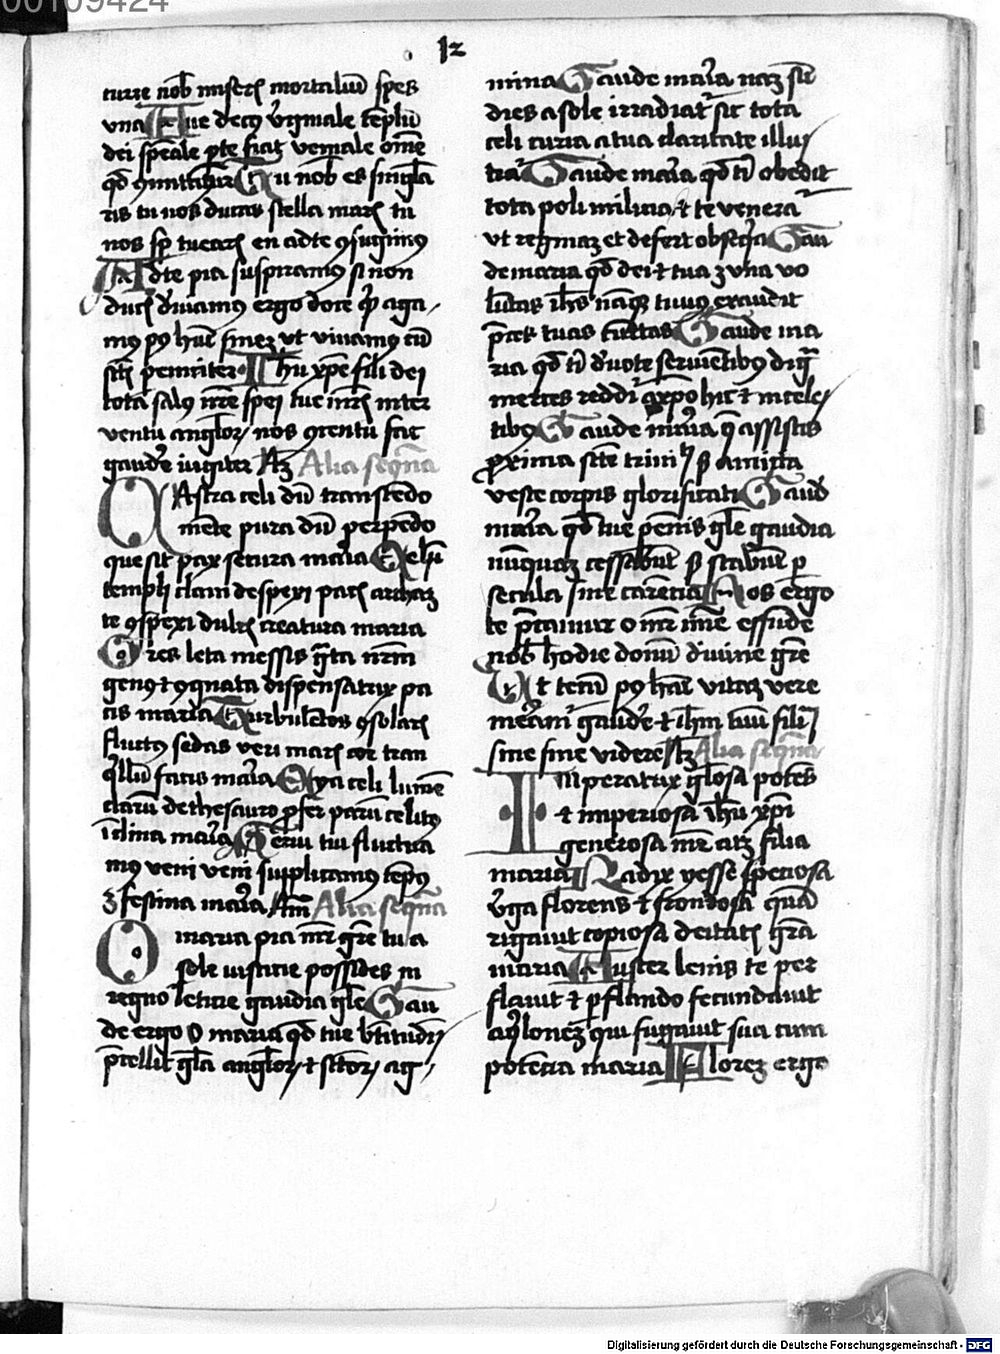 00109424
12
curre nob miserꝭ mortaliū spes
vna Aue decꝰ v̓ginale tēplū
dei spēale p te fiat veniale om̄e
qd ꝯmittitur Tu nob es singla
ris tu nos ducas stella marꝭ tu
nos sp tuearꝭ en adte ꝯfugimꝰ
Ad te pia suspiramꝰ si non
ducꝭ deviamꝰ ergo doce qd aga
mꝰ pꝰ hūc finez vt vivamꝰ cū
sctꝭ perniter Ihu xp̄e fili dei
tota salꝰ nr̄e spei tue mr̄is inter
ventu angloꝝ nos ꝯcentu fac
gaudē iugiter Az Alia seqn̄a
Ad Astra celi dū transcēdo
mēte pura dū perpēdo
que sit pax secura maria Celū
templi clam despexi patꝭ archaz
te ꝯspexi dulcꝭ creatura maria
Ores leta messis gͣta nr̄m
genꝰ ⁊ ꝯgnata dispensatrix pa
cis maria Turbulētos ꝯsolarꝭ
fluctꝰ sedas veri marꝭ cor tran
qllū facis maria Etya celi lumē
clarū de thesauro pfer parū celitꝰ
īclina maria Cerni tui fluctua
mꝰ veni veni supplicamꝰ tēpꝰ
ȝ festina maria Am̄ Alia seqn̄a
O maria pia mr̄ gr̄e tu a
sole iusticie possides in
regno leticie gaudia gle Gau
de ergo o maria qd tue btitudīs
p̄cellit gla angloꝝ ⁊ sctoꝝ ag
mina Gaude maria naz sic
dies a sole irradiat sic tota
celi curia a tua claritate illu
tra Gaude maria qd ti obedit
tota poli milicia ⁊ te venera
vt reginaz et defert obseqa Gau
de maria qd dei ⁊ tua ȝ vna vo
lūtas ih̄s nāqꝫ tuus exaudit
p̄ces tuas cūctas Gaude ma
ria qd ti devote servientibꝰ dig
mercēs reddi a xp̄o hic ⁊ in cele
tibꝰ Gaude maria q̄ assistis
proxima scte trinitⁱ sꝫ amicta
veste corpis glorificati Gaud
maria qd tue pennis gle gaudia
nūquaz cessabūt sꝫ stabūt p
secula sine carēcia Nos ergo
te p̄camur o mr̄ im̄e effunde
nob hodie donū divine gr̄e
Vt tecū pꝰ hāc vitaz vere
mēam̄ gaudē ⁊ ihm tuū filiū
sine fine videre Az Alia seqn̄a
Imperatrix glosa potēs
⁊ imperiosa ih̄u xp̄i
generosa mr̄ atqꝫ filia
maria Radix yesse speciosa
v̓ga florens ⁊ frondosa quā
rigavit copiosa deitatꝭ gr̄a
maria Auster lenis te per
flavit ⁊ pflando fecundavit
aqlonez qui fugavit sua cum
potēcia maria Florez ergo
Digitalisierung gefördert durch die Deutsche Forschungsgemeinschaft - DFG